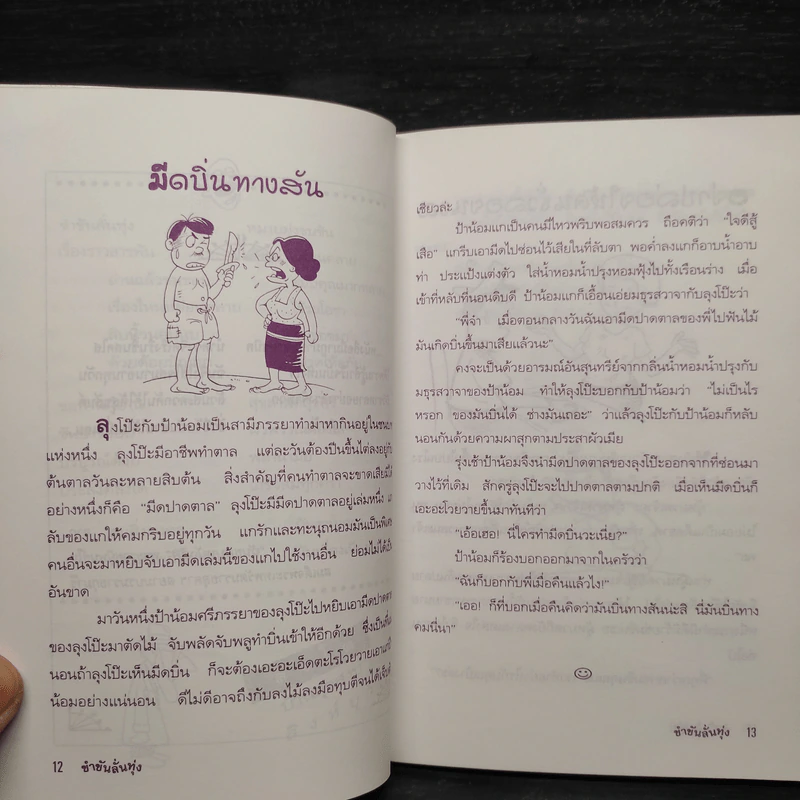 มีดบิ่นทางสัน
ลุงโป๊ะกับป้าน้อมเป็นสามีภรรยาทำมาหากินอยู่ในชนบท
แห่งหนึ่ง ลุงโป๊ะมีอาชีพทำตาล แต่ละวันต้องปีนขึ้นไต่ลงอยู่กับ
ต้นตาลวันละหลายสิบต้น สิ่งสำคัญที่คนทำตาลจะขาดเสียมิได้
อย่างหนึ่งก็คือ “มีดปาดตาล” ลุงโป๊ะมีมีดปาดตาลอยู่เล่มหนึ่ง
ลับของแกให้คมกริบอยู่ทุกวัน แกรักและทะนุถนอมมันเป็นพิเศษ
คนอื่นจะมาหยิบจับเอามีดเล่มนี้ของแกไปใช้งานอื่น ย่อมไม่ได้เป็น
อันขาด
มาวันหนึ่งป้าน้อมศรีภรรยาของลุงโป๊ะไปหยิบเอามีดปาดตาล
ของลุงโป๊ะมาตัดไม้ จับพลัดจับพลูทำบิ่นเข้าให้อีกด้วย ซึ่งเป็นที่แน่
นอนถ้าลุงโป๊ะเห็นมีดบิ่น ก็จะต้องเอะอะเอ็ดตะโรโวยวายเอาแก่ป้า
น้อมอย่างแน่นอน ดีไม่ดีอาจถึงกับลงไม้ลงมือทุบตีจนได้เจ็บตัว
12 ขำขันลั่นทุ่ง
เชียวล่ะ
ป้าน้อมแกเป็นคนมีไหวพริบพอสมควร ถือคติว่า “ใจดีสู้
เสือ” แกรีบเอามีดไปซ่อนไว้เสียในที่ลับตา พอค่ำลงแกก็อาบน้ำอาบ
ท่า ประแป้งแต่งตัว ใส่น้ำหอมน้ำปรุงหอมฟุ้งไปทั้งเรือนร่าง เมื่อ
เข้าที่หลับที่นอนดิบดี ป้าน้อมแกก็เอื้อนเอ่ยมธุรสวาจากับลุงโป๊ะว่า
“พี่จ๋า เมื่อตอนกลางวันฉันเอามีดปาดตาลของพี่ไปฟันไม้
มันเกิดบิ่นขึ้นมาเสียแล้วนะ”
คงจะเป็นด้วยอารมณ์อันสุนทรีย์จากกลิ่นน้ำหอมน้ำปรุงกับ
มธุรสวาจาของป้าน้อม ทำให้ลุงโป๊ะบอกกับป้าน้อมว่า “ไม่เป็นไร
หรอก ของมันบิ่นได้ ช่างมันเถอะ” ว่าแล้วลุงโป๊ะกับป้าน้อมก็หลับ
นอนกันด้วยความผาสุกตามประสาผัวเมีย
รุ่งเช้าป้าน้อมจึงนำมีดปาดตาลของลุงโป๊ะออกจากที่ซ่อนมา
วางไว้ที่เดิม สักครู่ลุงโป๊ะจะไปปาดตาลตามปกติ เมื่อเห็นมีดบิ่นก็
เอะอะโวยวายขึ้นมาทันทีว่า
“เอ้อเฮอ! นี่ใครทำมีดบิ่นวะเนี่ย?”
ป้าน้อมก็ร้องบอกออกมาจากในครัวว่า
“ฉันก็บอกกับพี่เมื่อคืนแล้วไง!”
“เออ! ก็ที่บอกเมื่อคืนคิดว่ามันบิ่นทางสันน่ะสิ นี่มันบิ่นทาง
คมนี่นา”
ขำขันลั่นทุ่ง 13